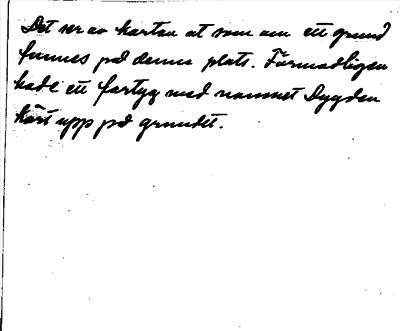 Det ser av kartan ut som om ett grund
finnes på denna plats. Förmodligen
hade ett fartyg med namnet Dygden
kört upp på grundet.